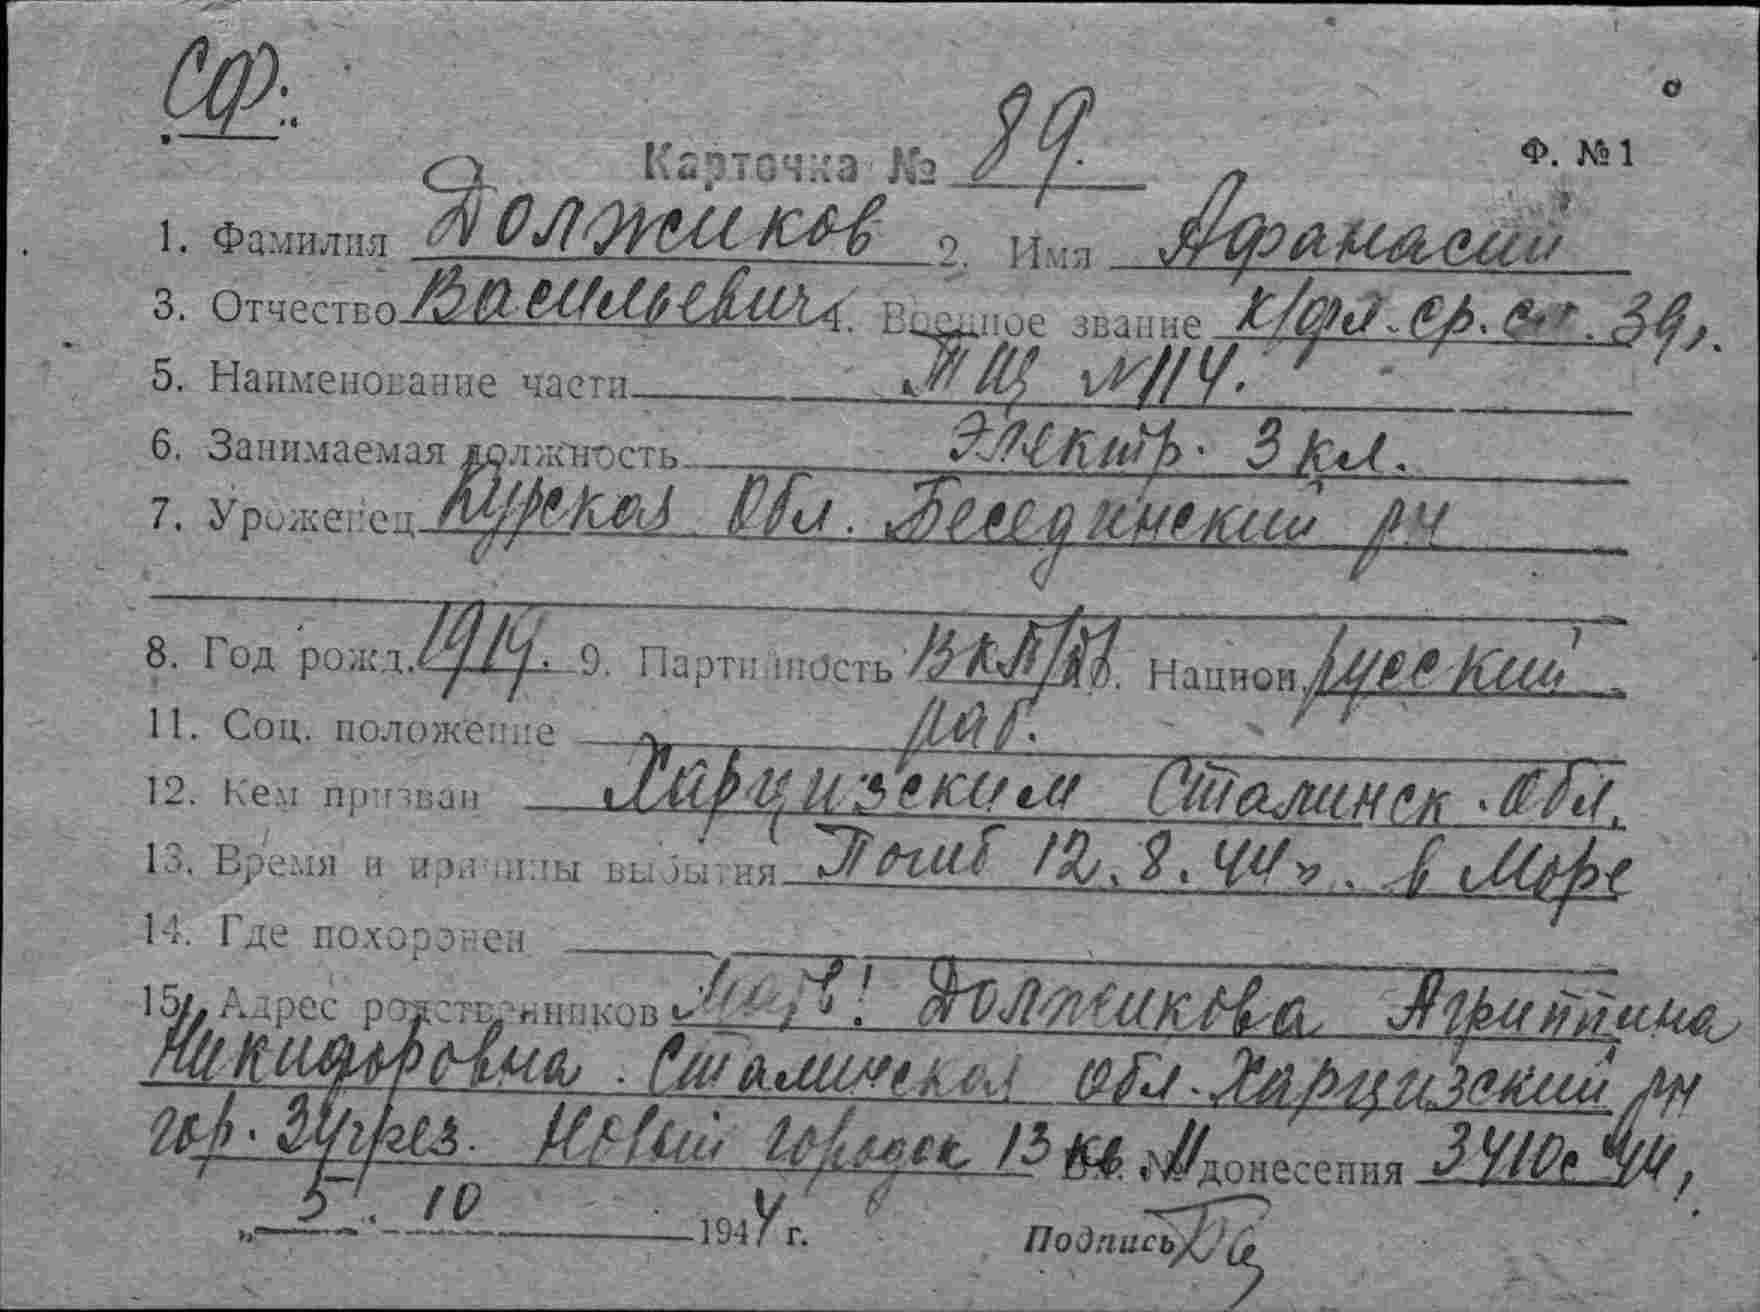 СФ.
Карточка № 89.
Ф. № 1
1. Фамилия Должиков 2. Имя Афанасий
3. Отчество Васильевич 4. Военное звание к/фл. ср. ст. 39г.
5. Наименование части ТЩ №114.
6. Занимаемая должность Электр. 3 кл.
7. Уроженец Курская Обл. Бесединский рн
8. Год рожд. 1919. 9. Партийность ВКП/б. Национ. русский
11. Соц. положение раб.
12. Кем призван Харцизским Сталинск. обл.
13. Время и причины выбытия Погиб 12.8.44г. в Море
14. Где похоронен
15. Адрес родственников Мать! Должикова Агриппина
Никифоровна. Сталинская обл. Харцизский рн
гор. Зугрэз. Новый городок 13 кв. 11 донесения 3410с 44,
„ 5 " 10 1944 г. Подпись